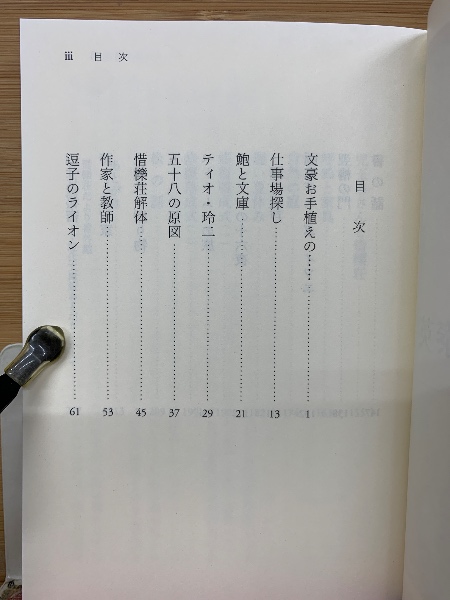 iii 目次
目次
文豪お手植えの…… 1
仕事場探し 13
鮑と文庫 21
ティオ・玲二 29
五十八の原図 37
惜櫟荘解体 45
作家と教師 53
逗子のライオン 61